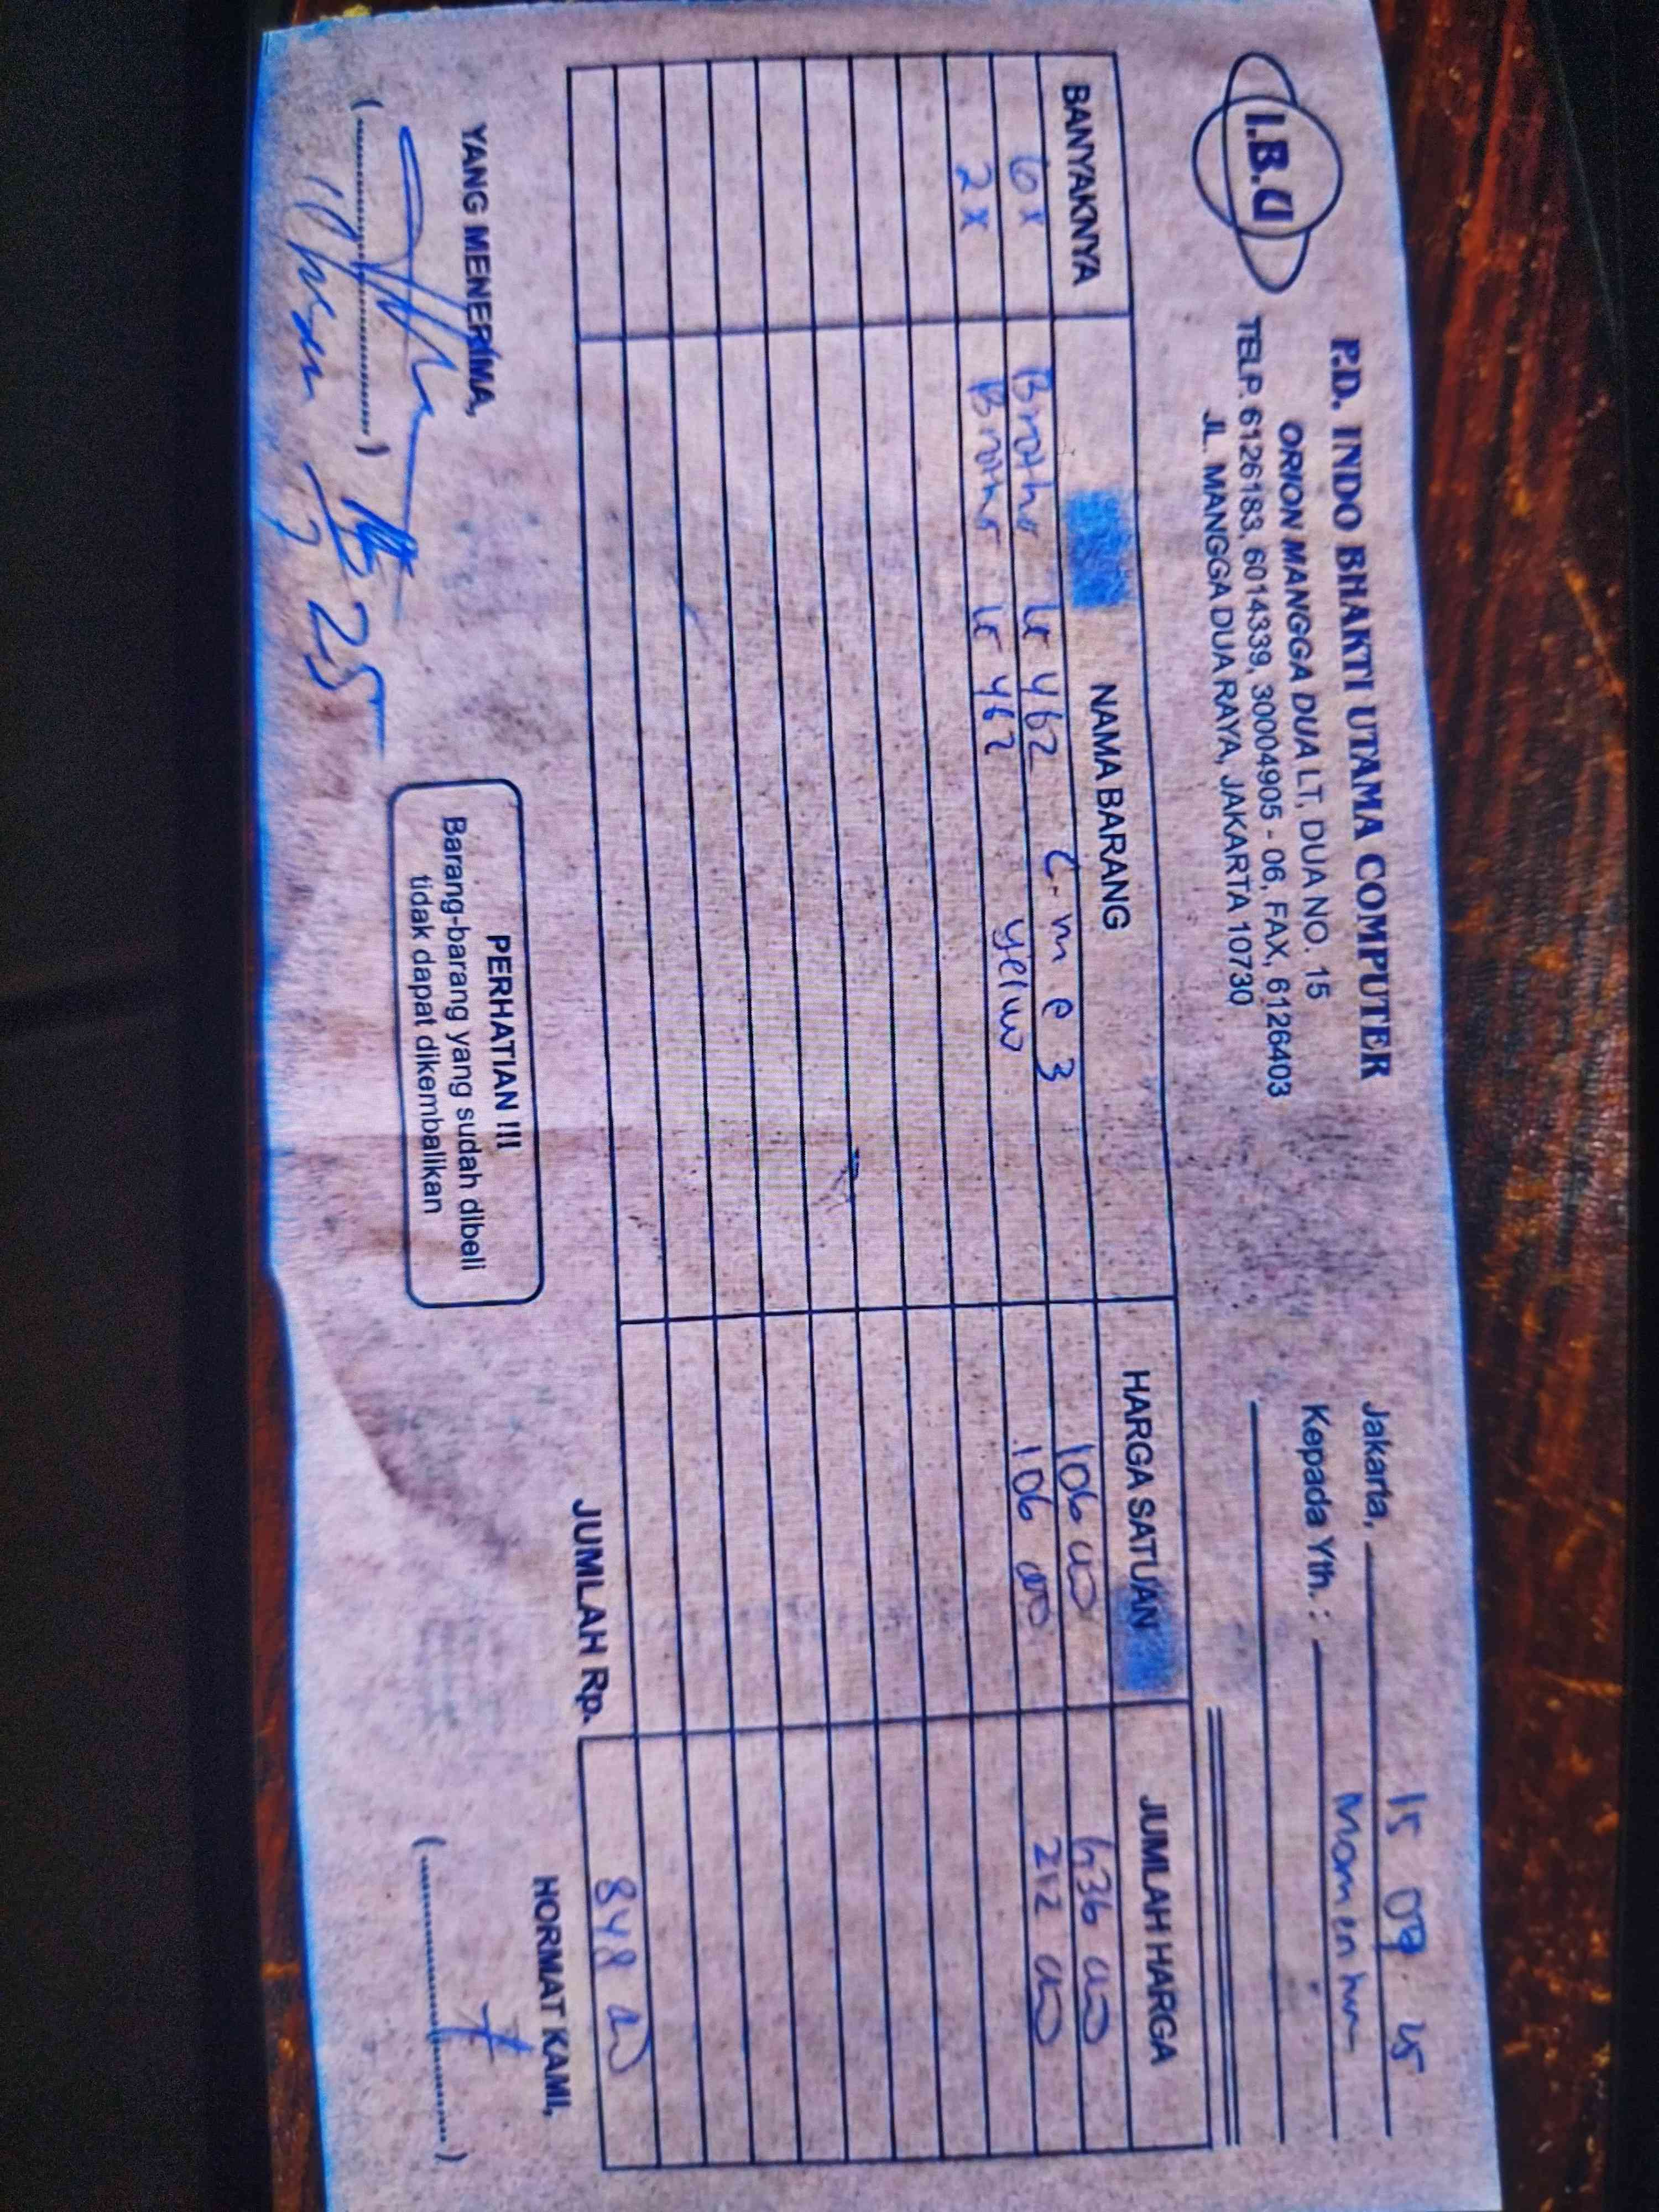 I.B.U
P.D. INDO BHAKTI UTAMA COMPUTER
ORION MANGGA DUA LT. DUA NO. 15
TELP. 6126183, 6014339, 3004905 - 06, FAX, 6126403
JL. MANGGA DUA RAYA, JAKARTA 10730
Jakarta, 15 09
Kepada Yth. :
BANYAKNYA NAMA BARANG HARGA SATUAN JUMLAH HARGA
6x Brother 462 C m e 3 106 000 636 000
2x Brother 462 106 000 212 000
JUMLAH Rp. 848
YANG MENERIMA,
PERHATIAN !!!
Barang-barang yang sudah dibeli
tidak dapat dikembalikan
HORMAT KAMI,
25